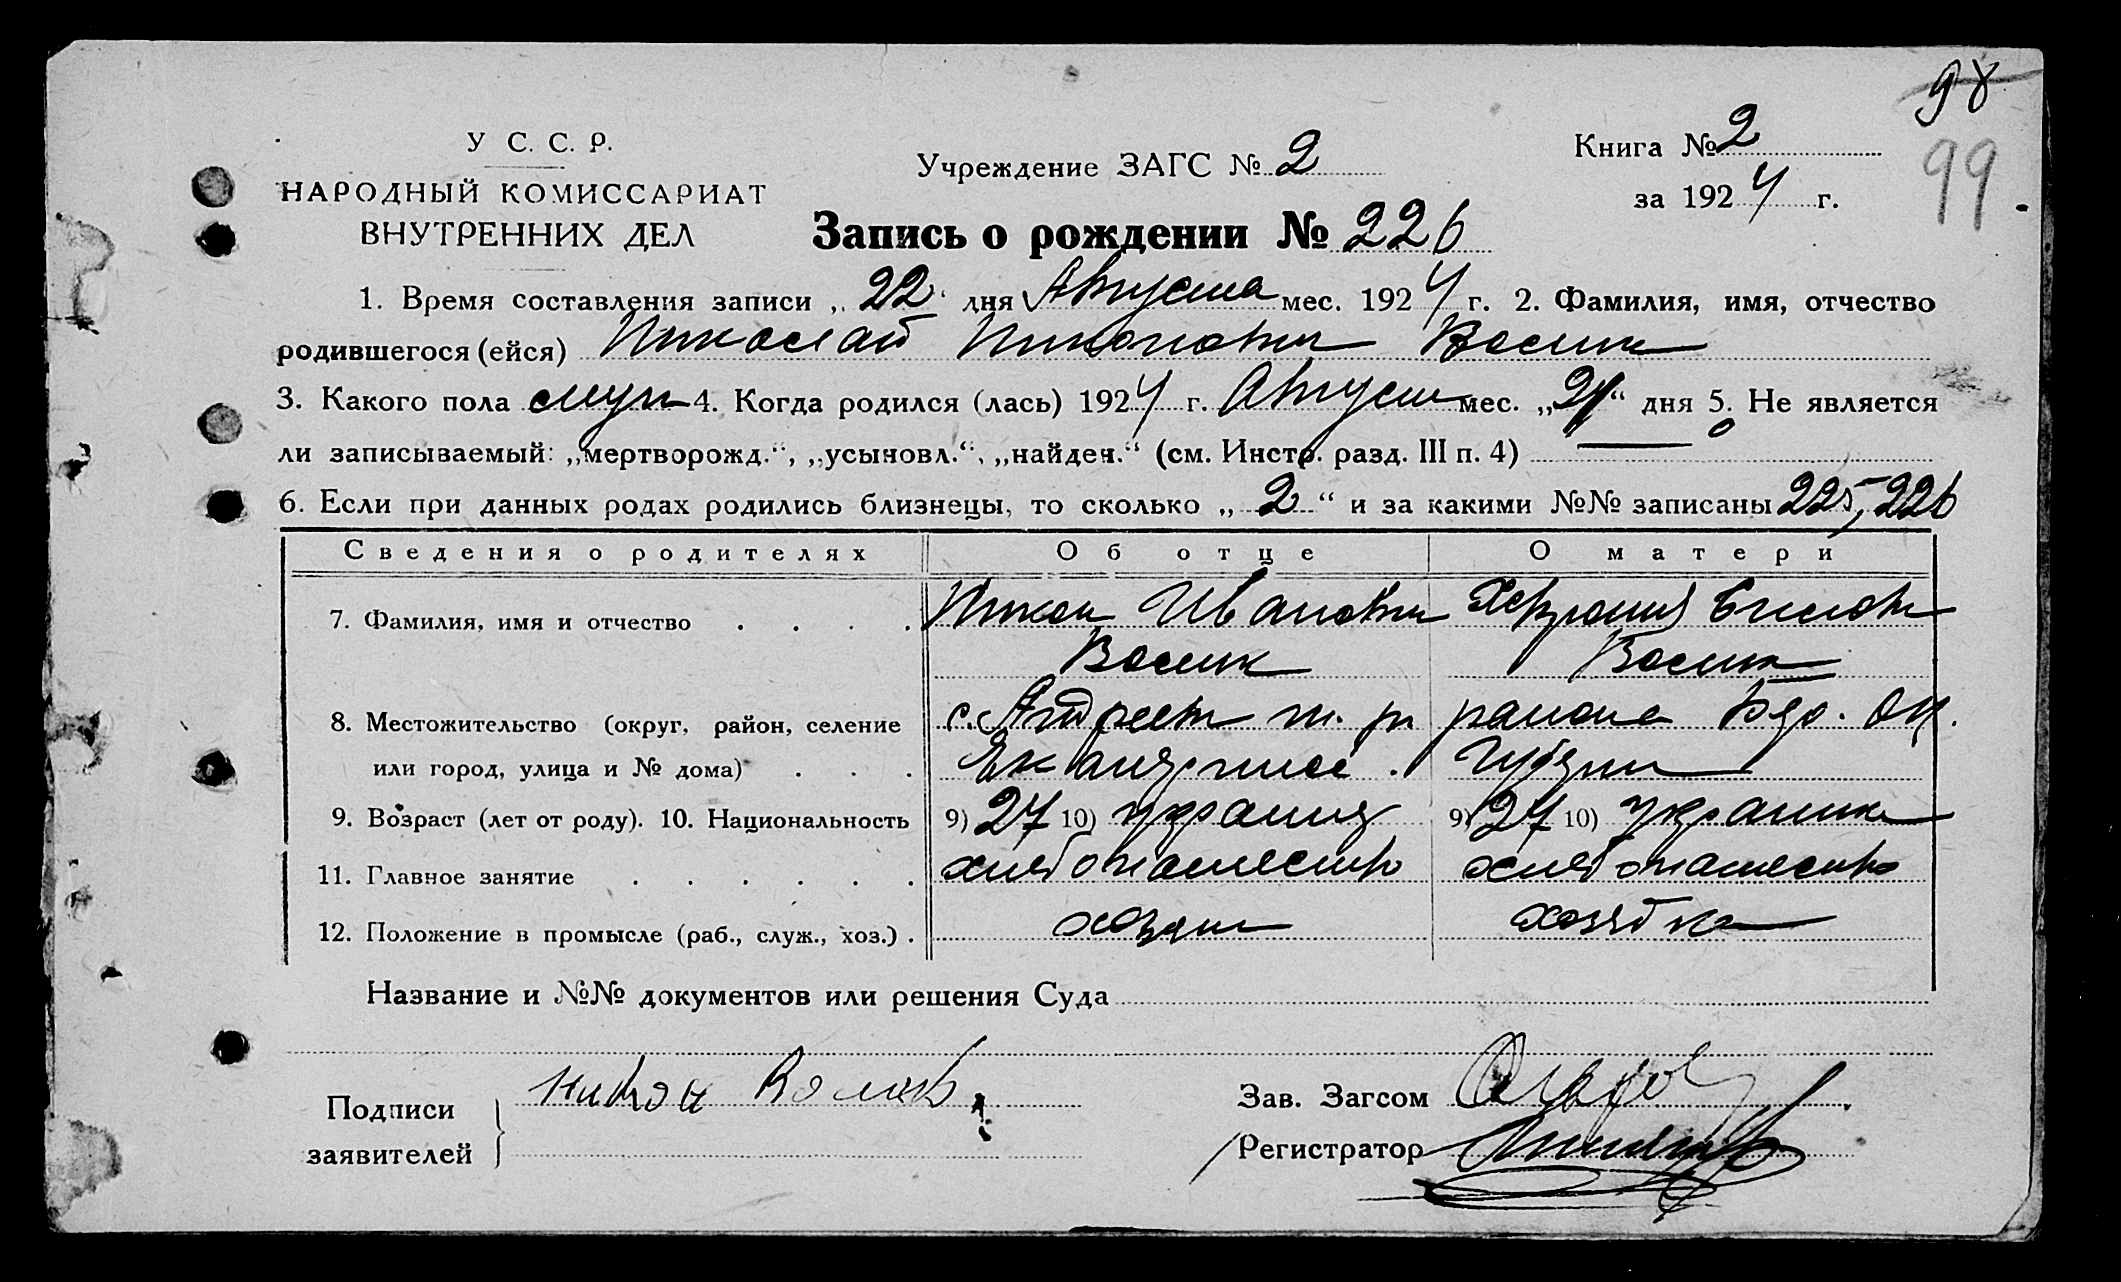 98
99
У С. С. Р.
НАРОДНЫЙ КОМИССАРИАТ
ВНУТРЕННИХ ДЕЛ
Учреждение ЗАГС № 2
Книга № 2
за 1924 г.
Запись о рождении № 226
1. Время составления записи „22“ дня Августа мес. 1924 г. 2. Фамилия, имя, отчество
родившегося (ейся) Николай Никонович
3. Какого пола муж 4. Когда родился (лась) 1924 г. Август мес. „21“ дня 5. Не является
ли записываемый: „мертворожд.“, „усыновл.“, „найден.“ (см. Инстр. разд. III п. 4)
6. Если при данных родах родились близнецы, то сколько „2“ и за какими №№ записаны 225, 226
Сведения о родителях Об отце О матери
7. Фамилия, имя и отчество . . . . Никон Иванович
8. Местожительство (округ, район, селение района Бер. Ок.
или город, улица и № дома) . . . Губерни
9. Возраст (лет от роду). 10. Национальность 9) 27 10) украинц 9) 27 10) украинка
11. Главное занятие . . . . . . хлебопашество хлебопашество
12. Положение в промысле (раб., служ., хоз.) . хозяин хозяйка
Название и №№ документов или решения Суда
Подписи
заявителей
Никон
Зав. Загсом
Регистратор